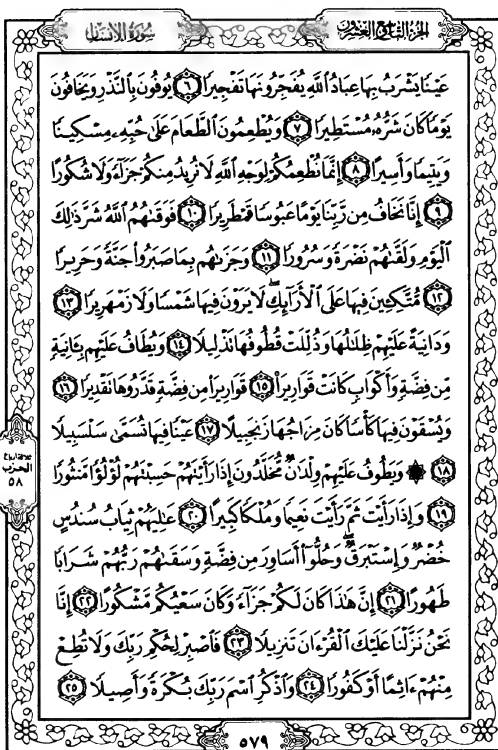 سورة الإنسان
الجزء التاسع والعشرون
عَيْنًا يَشْرَبُ بِهَا عِبَادُ ٱللَّهِ يُفَجِّرُونَهَا تَفْجِيرًا ٦ يُوفُونَ بِٱلنَّذْرِ وَيَخَافُونَ
يَوْمًا كَانَ شَرُّهُۥ مُسْتَطِيرًا ٧ وَيُطْعِمُونَ ٱلطَّعَامَ عَلَىٰ حُبِّهِۦ مِسْكِينًا
وَيَتِيمًا وَأَسِيرًا ٨ إِنَّمَا نُطْعِمُكُمْ لِوَجْهِ ٱللَّهِ لَا نُرِيدُ مِنكُمْ جَزَآءً وَلَا شُكُورًا
٩ إِنَّا نَخَافُ مِن رَّبِّنَا يَوْمًا عَبُوسًا قَمْطَرِيرًا ١٠ فَوَقَىٰهُمُ ٱللَّهُ شَرَّ ذَٰلِكَ
ٱلْيَوْمِ وَلَقَّىٰهُمْ نَضْرَةً وَسُرُورًا ١١ وَجَزَىٰهُم بِمَا صَبَرُوا۟ جَنَّةً وَحَرِيرًا
١٢ مُّتَّكِـِٔينَ فِيهَا عَلَى ٱلْأَرَآئِكِ ۖ لَا يَرَوْنَ فِيهَا شَمْسًا وَلَا زَمْهَرِيرًا ١٣
وَدَانِيَةً عَلَيْهِمْ ظِلَـٰلُهَا وَذُلِّلَتْ قُطُوفُهَا تَذْلِيلًا ١٤ وَيُطَافُ عَلَيْهِم بِـَٔانِيَةٍ
مِّن فِضَّةٍ وَأَكْوَابٍ كَانَتْ قَوَارِيرَا۠ ١٥ قَوَارِيرَا۟ مِن فِضَّةٍ قَدَّرُوهَا تَقْدِيرًا ١٦
وَيُسْقَوْنَ فِيهَا كَأْسًا كَانَ مِزَاجُهَا زَنجَبِيلًا ١٧ عَيْنًا فِيهَا تُسَمَّىٰ سَلْسَبِيلًا
١٨ ۞ وَيَطُوفُ عَلَيْهِمْ وِلْدَٰنٌ مُّخَلَّدُونَ إِذَا رَأَيْتَهُمْ حَسِبْتَهُمْ لُؤْلُؤًا مَّنثُورًا
١٩ وَإِذَا رَأَيْتَ ثَمَّ رَأَيْتَ نَعِيمًا وَمُلْكًا كَبِيرًا ٢٠ عَـٰلِيَهُمْ ثِيَابُ سُندُسٍ
خُضْرٌ وَإِسْتَبْرَقٌ ۖ وَحُلُّوٓا۟ أَسَاوِرَ مِن فِضَّةٍ وَسَقَىٰهُمْ رَبُّهُمْ شَرَابًا
طَهُورًا ٢١ إِنَّ هَـٰذَا كَانَ لَكُمْ جَزَآءً وَكَانَ سَعْيُكُم مَّشْكُورًا ٢٢ إِنَّا
نَحْنُ نَزَّلْنَا عَلَيْكَ ٱلْقُرْءَانَ تَنزِيلًا ٢٣ فَٱصْبِرْ لِحُكْمِ رَبِّكَ وَلَا تُطِعْ
مِنْهُمْ ءَاثِمًا أَوْ كَفُورًا ٢٤ وَٱذْكُرِ ٱسْمَ رَبِّكَ بُكْرَةً وَأَصِيلًا ٢٥
الحزب
٥٨
٥٧٩